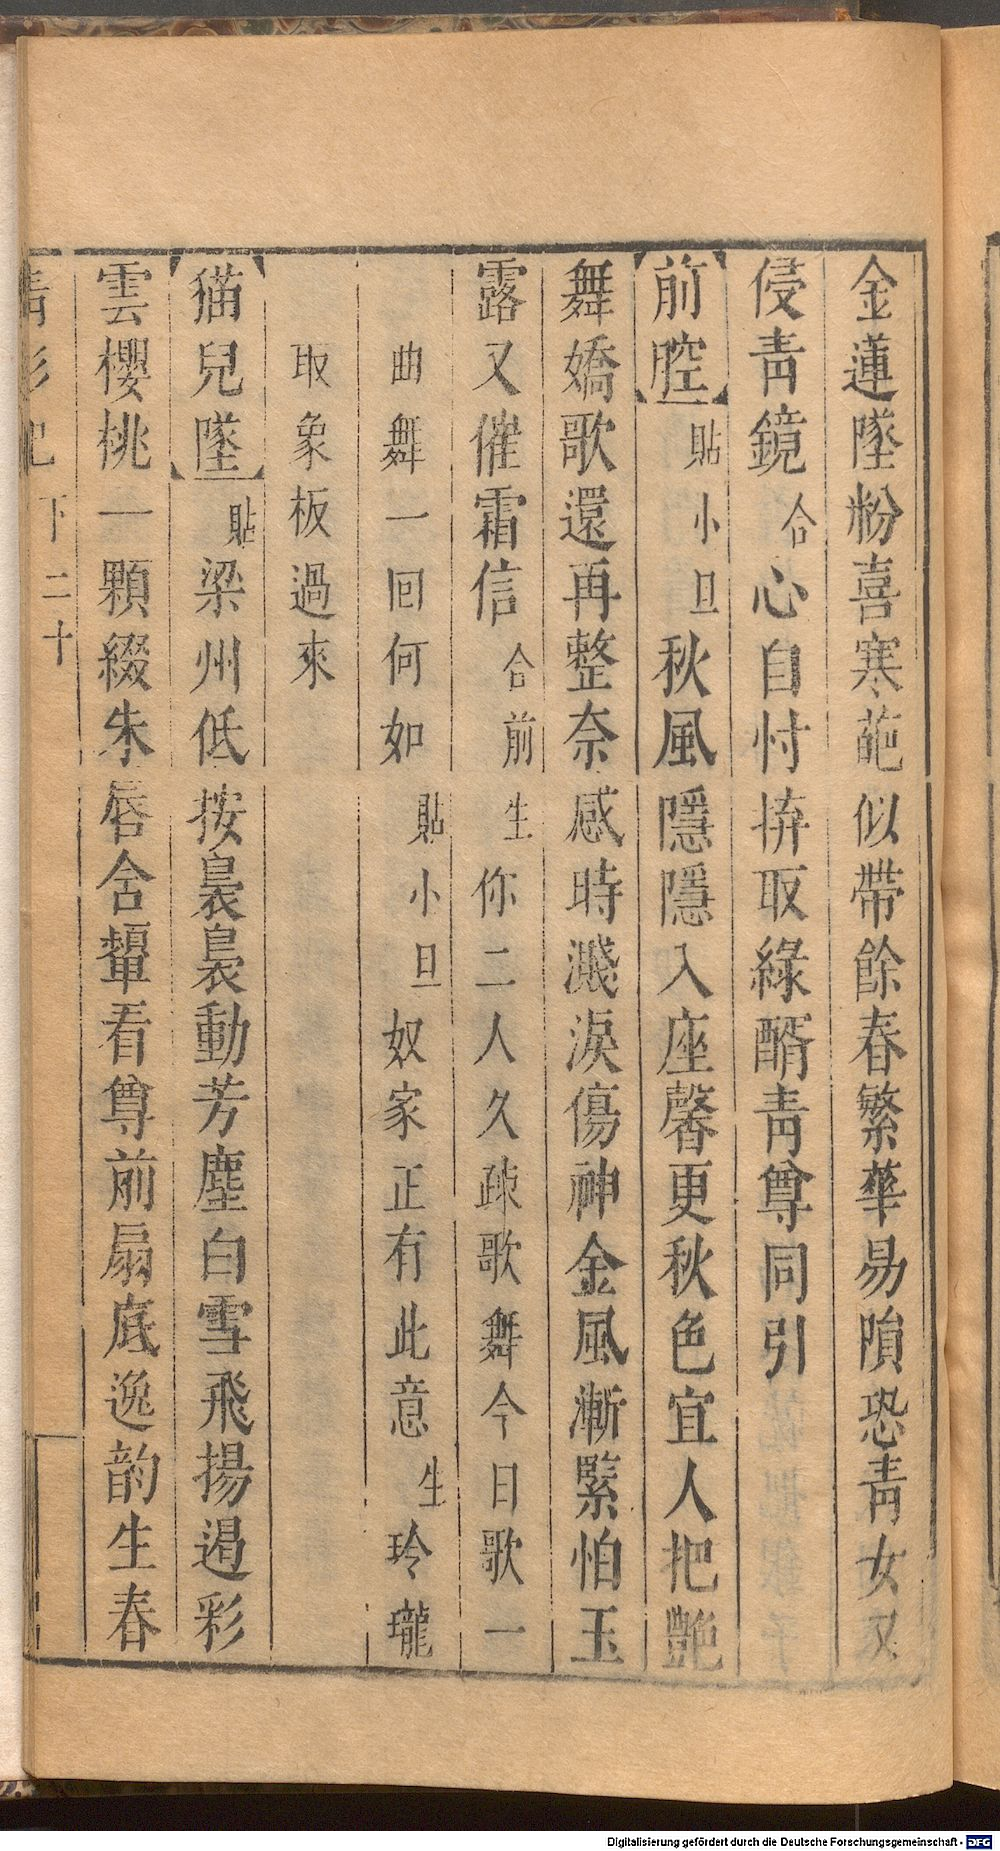 金蓮墜粉喜寒葩似帶餘春繁華易隕恐靑女又
侵靑鏡合心自忖拚取綠醑靑尊同引
前腔貼小旦秋風隱隱入座馨更秋色宜人把艷
舞嬌歌還再整奈感時濺淚傷神金風漸緊怕玉
露又催霜信合前生你二人久疎歌舞今日歌一
曲舞一回何如貼小旦奴家正有此意生玲瓏
取象板過來
猫兒墜貼梁州低按裊裊動芳塵白雪飛揚遏彩
雲櫻桃一顆綴朱唇含顰看尊前扇底逸韵生春
靑衫記下二十
Digitalisierung gefördert durch die Deutsche Forschungsgemeinschaft - DFG